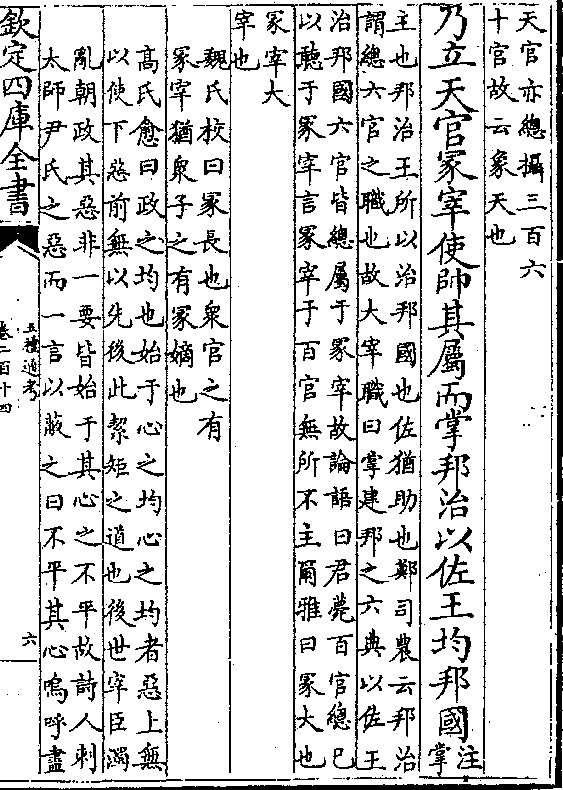 天官亦總攝三百六
十官故云象天也
乃立天官冢宰使帥其屬而掌邦治以佐王均邦國注
掌
主也邦治王所以治邦國也佐猶助也鄭司農云邦治
謂總六官之職也故大宰職曰掌建邦之六典以佐王
治邦國六官皆總屬于冢宰故論語曰君薨百官總已
以聽于冢宰言冢宰于百官無所不主爾雅曰冢大也
冢宰大
宰也
魏氏校曰冢長也衆官之有
冢宰猶衆子之有冢嫡也
高氏愈曰政之均也始于心之均心之均者惡上無
以使下惡前無以先後此絜矩之道也後世宰臣濁
亂朝政其惡非一要皆始于其心之不平故詩人刺
太師尹氏之惡而一言以蔽之曰不平其心嗚呼盡
欽定四庫全書
五禮通考
卷二百十四
六